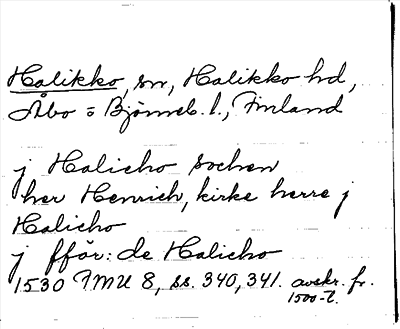 Halikko, sn, Halikko hd,
Åbo o Björneb. l., Finland
j Halicho sochen
her Henrich, kirke herre j
Halicho
j fför: de Halicho
1530 FMU 8, ss. 340, 341. avskr. fr.
1500-t.